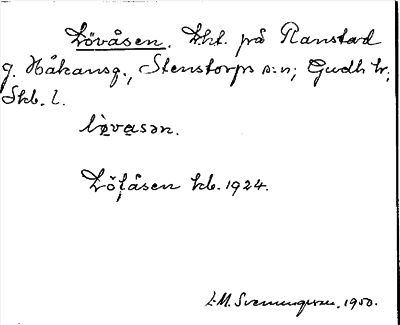 Lövåsen. Lht. på Ranstad
g. Håkansg., Stenstorps s:n; Gudh. hr;
Skb. l.
løvasən.
Löfåsen kb. 1924.
L.M. Svenungsson. 1950.